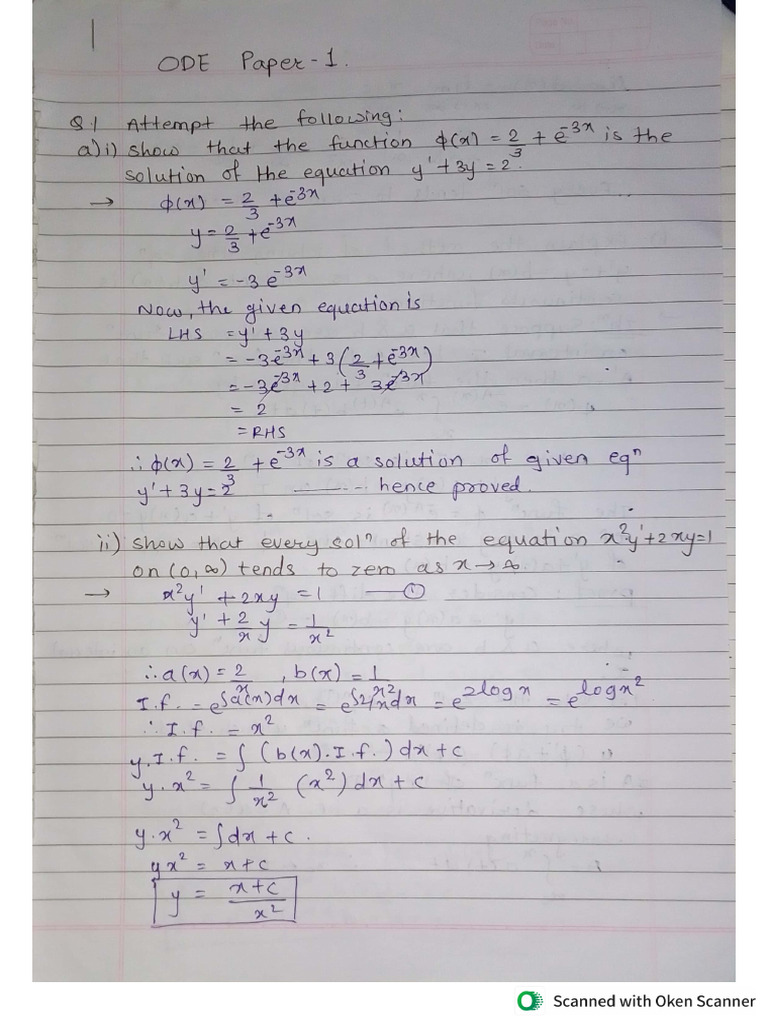 1
ODE Paper-1.
Q.1 Attempt the following:
a) i) show that the function ϕ(x) = 2/3 + e^-3x is the
solution of the equation y' + 3y = 2.
→ ϕ(x) = 2/3 + e^-3x
y = 2/3 + e^-3x
y' = -3 e^-3x
Now, the given equation is
LHS = y' + 3y
= -3e^-3x + 3(2/3 + e^-3x)
= -3e^-3x + 2 + 3e^-3x
= 2
= RHS
∴ ϕ(x) = 2/3 + e^-3x is a solution of given eqⁿ
y' + 3y = 2 ------- hence proved.
ii) show that every solⁿ of the equation x²y' + 2xy = 1
on (0, ∞) tends to zero as x → ∞
→ x²y' + 2xy = 1 —— ①
y' + 2/x y = 1/x²
∴ a(x) = 2/x , b(x) = 1/x²
I.f. = e^∫a(x)dx = e^∫2/x dx = e^2logx = e^logx²
∴ I.f. = x²
y.I.f. = ∫ (b(x).I.f.) dx + c
y.x² = ∫ 1/x² (x²) dx + c
y.x² = ∫dx + c.
yx² = x + c
y = x+c/x²
Scanned with Oken Scanner